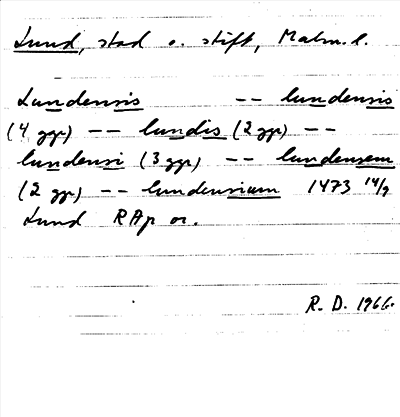 Lund, stad o. stift, Malm. l.
Lundensis -- lundensis
(4 ggr) -- lundis (2 ggr) --
lundensi (3 ggr) -- lundensem
(2 ggr) -- lundensium 1473 14/9
Lund RAp or.
R. D. 1966.